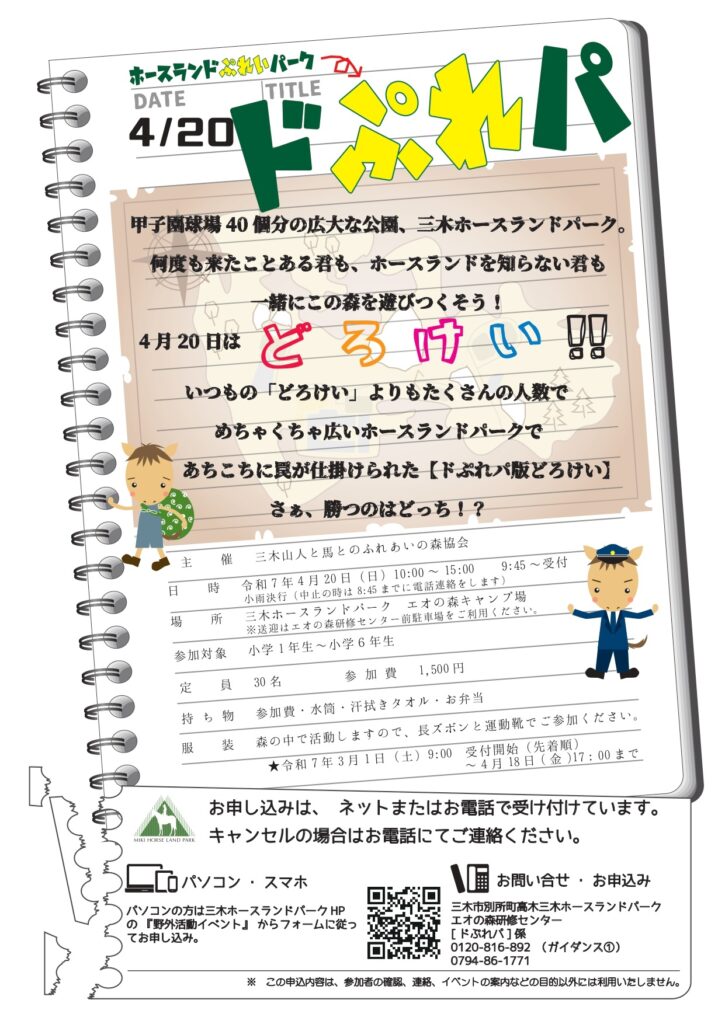 ホースランドぷれいパーク
DATE
TITLE
4/20
ドぷれパ
甲子園球場40個分の広大な公園、三木ホースランドパーク。
何度も来たことある君も、ホースランドを知らない君も
一緒にこの森を遊びつくそう！
4月20日は どろけい!!
いつもの「どろけい」よりもたくさんの人数で
めちゃくちゃ広いホースランドパークで
あちこちに罠が仕掛けられた【ドぷれパ版どろけい】
さぁ、勝つのはどっち！？
主催 三木山人と馬とのふれあいの森協会
日時 令和7年4月20日（日）10:00～15:00 9:45～受付
小雨決行（中止の時は8:45までに電話連絡をします）
場所 三木ホースランドパーク エオの森キャンプ場
※送迎はエオの森研修センター前駐車場をご利用ください。
参加対象 小学1年生～小学6年生
定員 30名 参加費 1,500円
持ち物 参加費・水筒・汗拭きタオル・お弁当
服装 森の中で活動しますので、長ズボンと運動靴でご参加ください。
★令和7年3月1日（土）9:00 受付開始（先着順）
～4月18日(金)17:00まで
MIKI HORSE LAND PARK
お申し込みは、 ネットまたはお電話で受け付けています。
キャンセルの場合はお電話にてご連絡ください。
パソコン・スマホ
パソコンの方は三木ホースランドパークHP
の『野外活動イベント』からフォームに従っ
てお申し込み。
お問い合せ・お申込み
三木市別所町高木三木ホースランドパーク
エオの森研修センター
[ドぷれパ]係
0120-816-892 （ガイダンス①）
0794-86-1771
※ この申込内容は、参加者の確認、連絡、イベントの案内などの目的以外には利用いたしません。